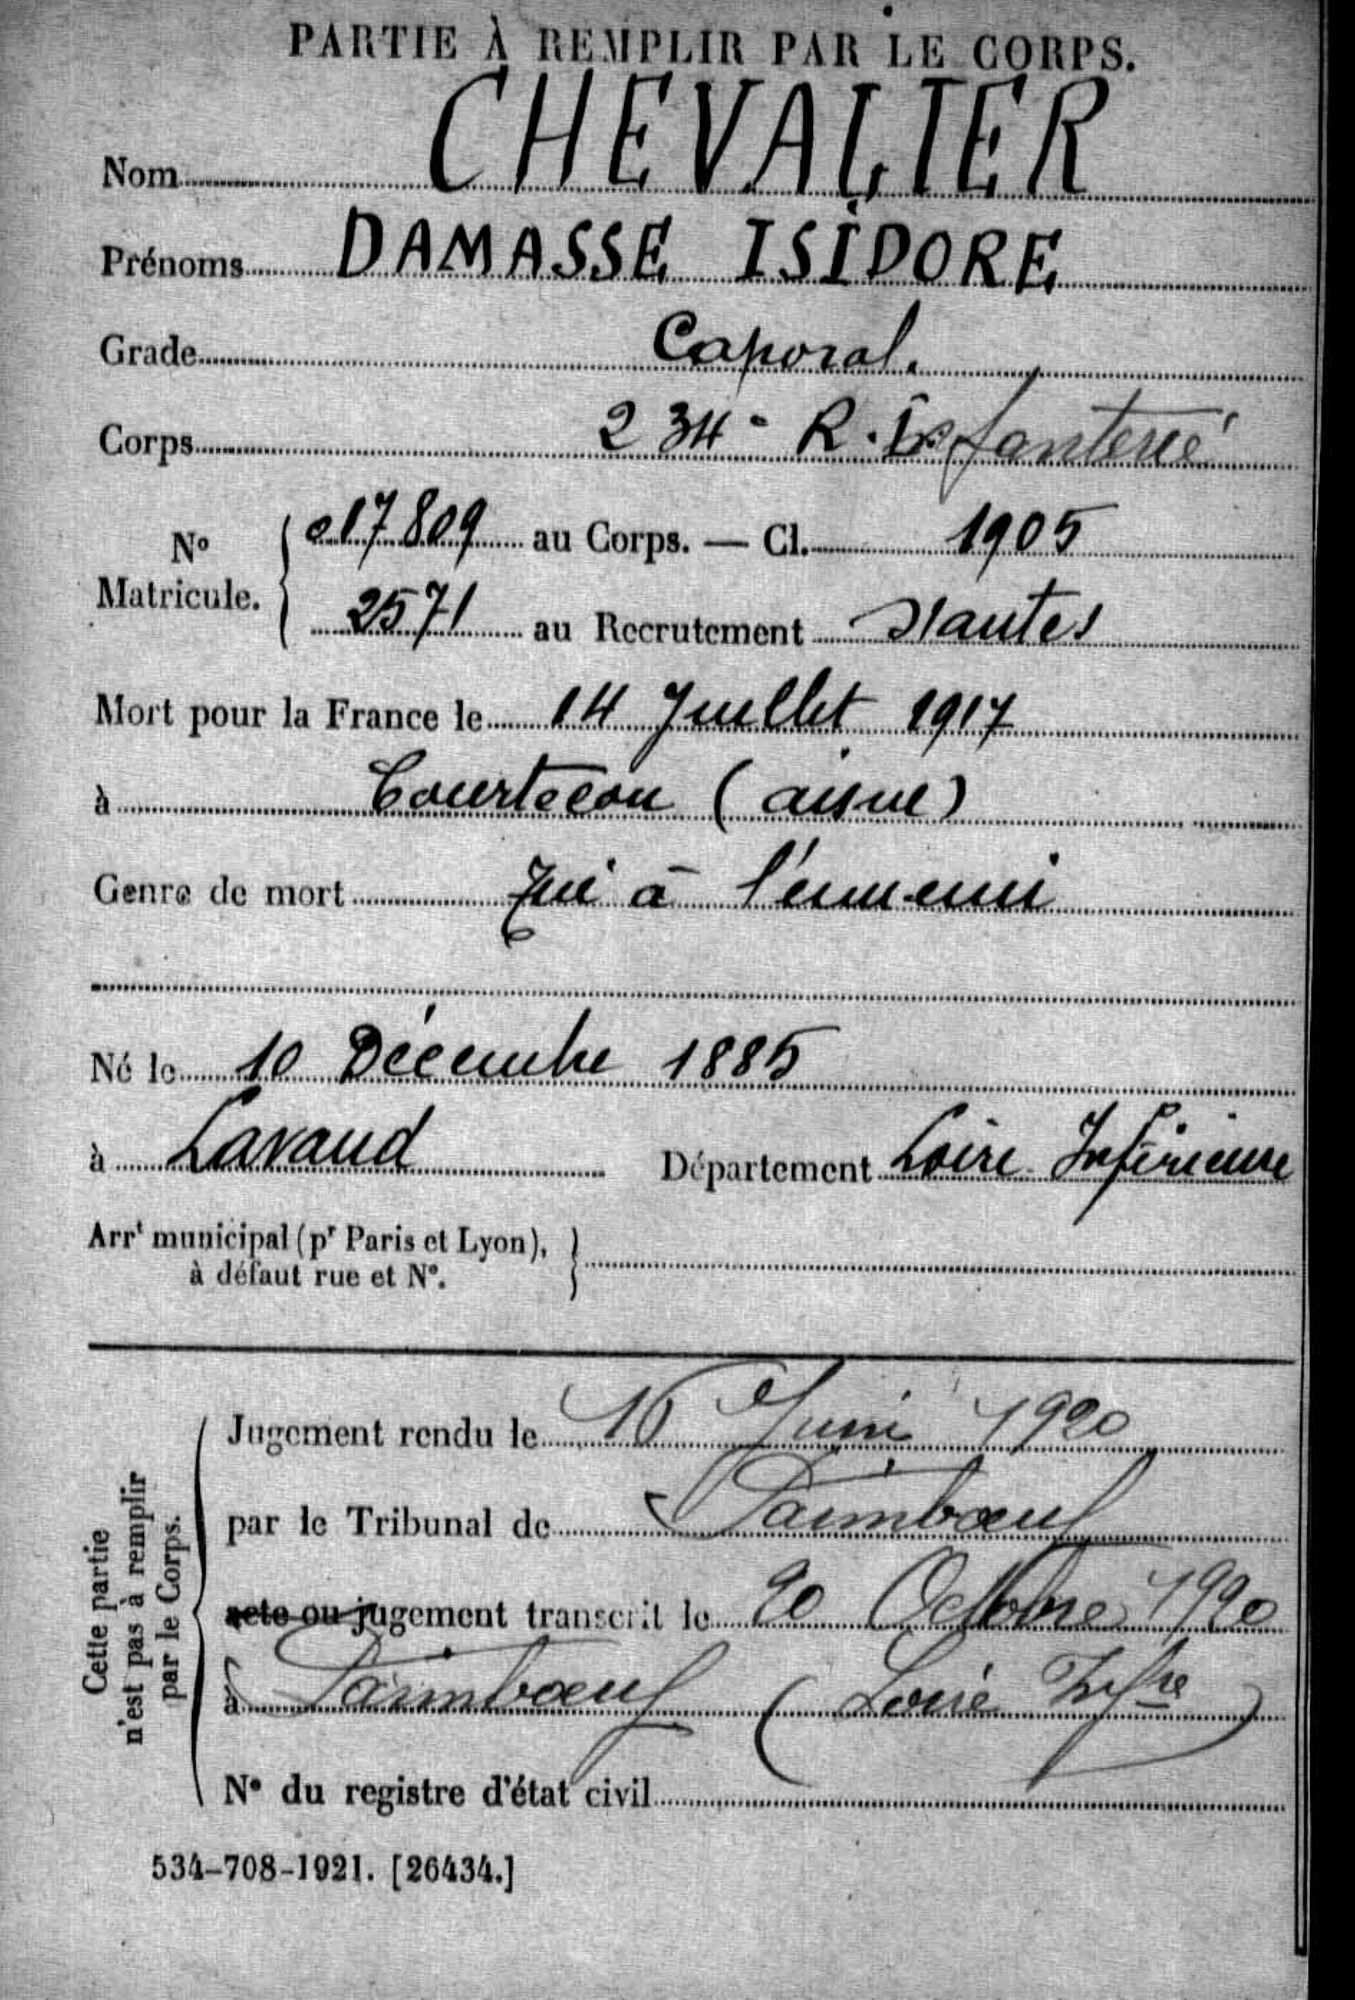 PARTIE À REMPLIR PAR LE CORPS.
Nom CHEVALIER
Prénoms DAMASSE ISIDORE
Grade Caporal.
Corps 234e R. Infanterie
No Matricule. 017809 au Corps. — Cl. 1905
2571 au Recrutement Nantes
Mort pour la France le 14 Juillet 1917
à Courtecon (aisne)
Genre de mort Tué à l'ennemi
Né le 10 Décembre 1885
à Lavaud Département Loire Inférieure
Arrt municipal (pr Paris et Lyon),
à défaut rue et No.
Cette partie
n'est pas à remplir
par le Corps.
Jugement rendu le 16 Juin 1920
par le Tribunal de Paimboeuf
acte ou jugement transcrit le 20 Octobre 1920
à Paimboeuf (Loire Infre)
No du registre d'état civil
534-708-1921. [26434.]